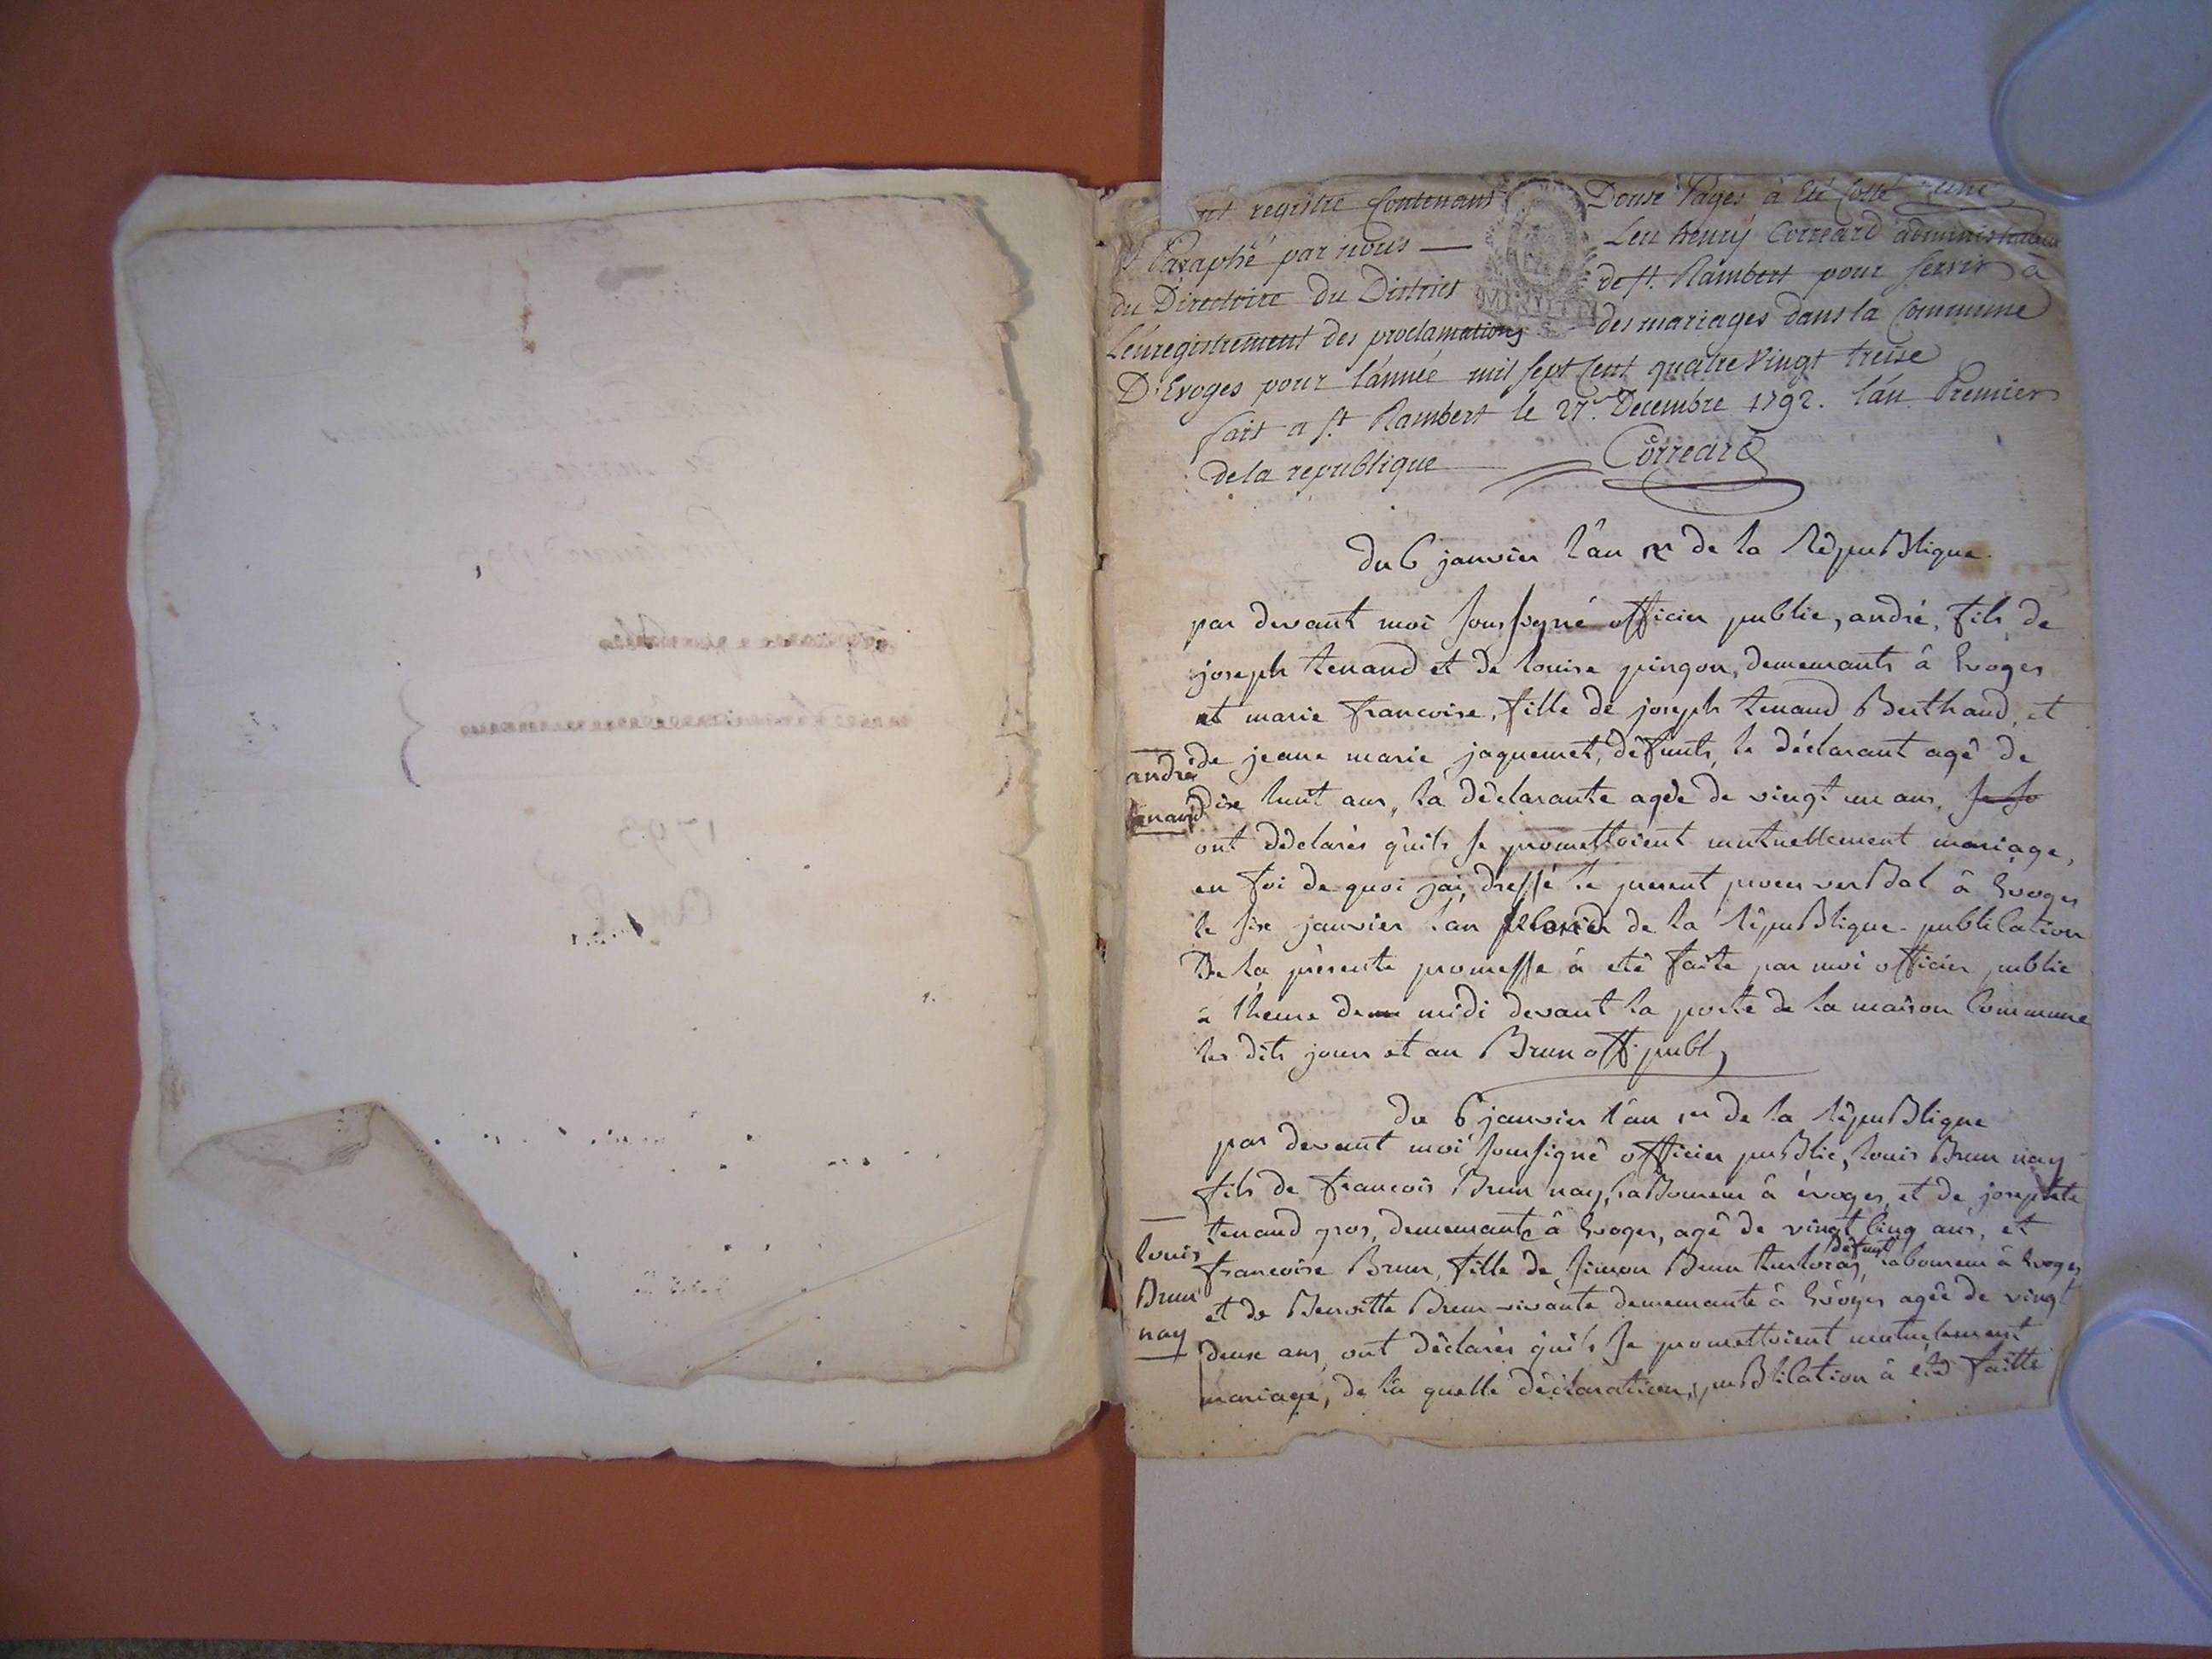 1793
nt registre Contenant Douse Pages à été Cotté
Paraphé par nous — Leu henry Correard administrateur
du Directoire du District de st. Rambert pour servir à
L'enregistrement des proclamations des mariages dans la Commune
D'Evoges pour l'année mil sept Cent quatre Vingt treise
fait a st Rambert le 27. Decembre 1792. l'an Premier
de la republique Correard
MINUTE
du 6 janvier l'an 1er de la rèpublique.
par devant moi soussigné officier public, andré, fils de
joseph tenand et de louise pingon, demeurants â Evoges
et marie francoise, fille de joseph tenand Berthaud, et
de jeane marie jaquemet, dêfunts, le déclarant agê de
andré
dixe huit ans, la dêclarante agée de vingt un ans,
tenand
ont dêclarés qu'ils se promettoient mutuellement mariage,
en foi de quoi jai dressé le present procu verbal â Evoges
le sixe janvier l'an de la rêpublique. publication
De la prèsente promesse â etê faite par moi officier public
a l'heure de midi devant la porte de la maison Commune
les dits jour et an Brun off. publ,
du 6 janvier l'an 1er de la rêpublique
par devant moi soussignê officier public, louis Brun nay
fils de francois Brun nay, laboureur â évoges, et de josephte
tenand gros, demeurants â Evoges, agê de vingt cinq ans, et
louis
défunt
francoise Brun, fille de simon Brun laboureur â Evoges
Brun
et de Benoitte Brun vivante demeurante â Evoges agêe de vingt
nay
deuxe ans, ont dêclarés quils se promettoient mutuelement
mariage, de la quelle dêclaration, publication â été faitte